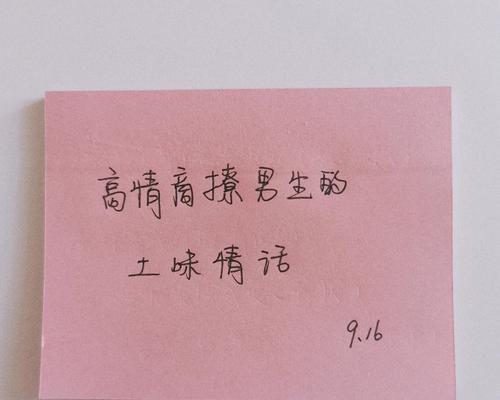 高情商撩男生的
土味情话
9.16